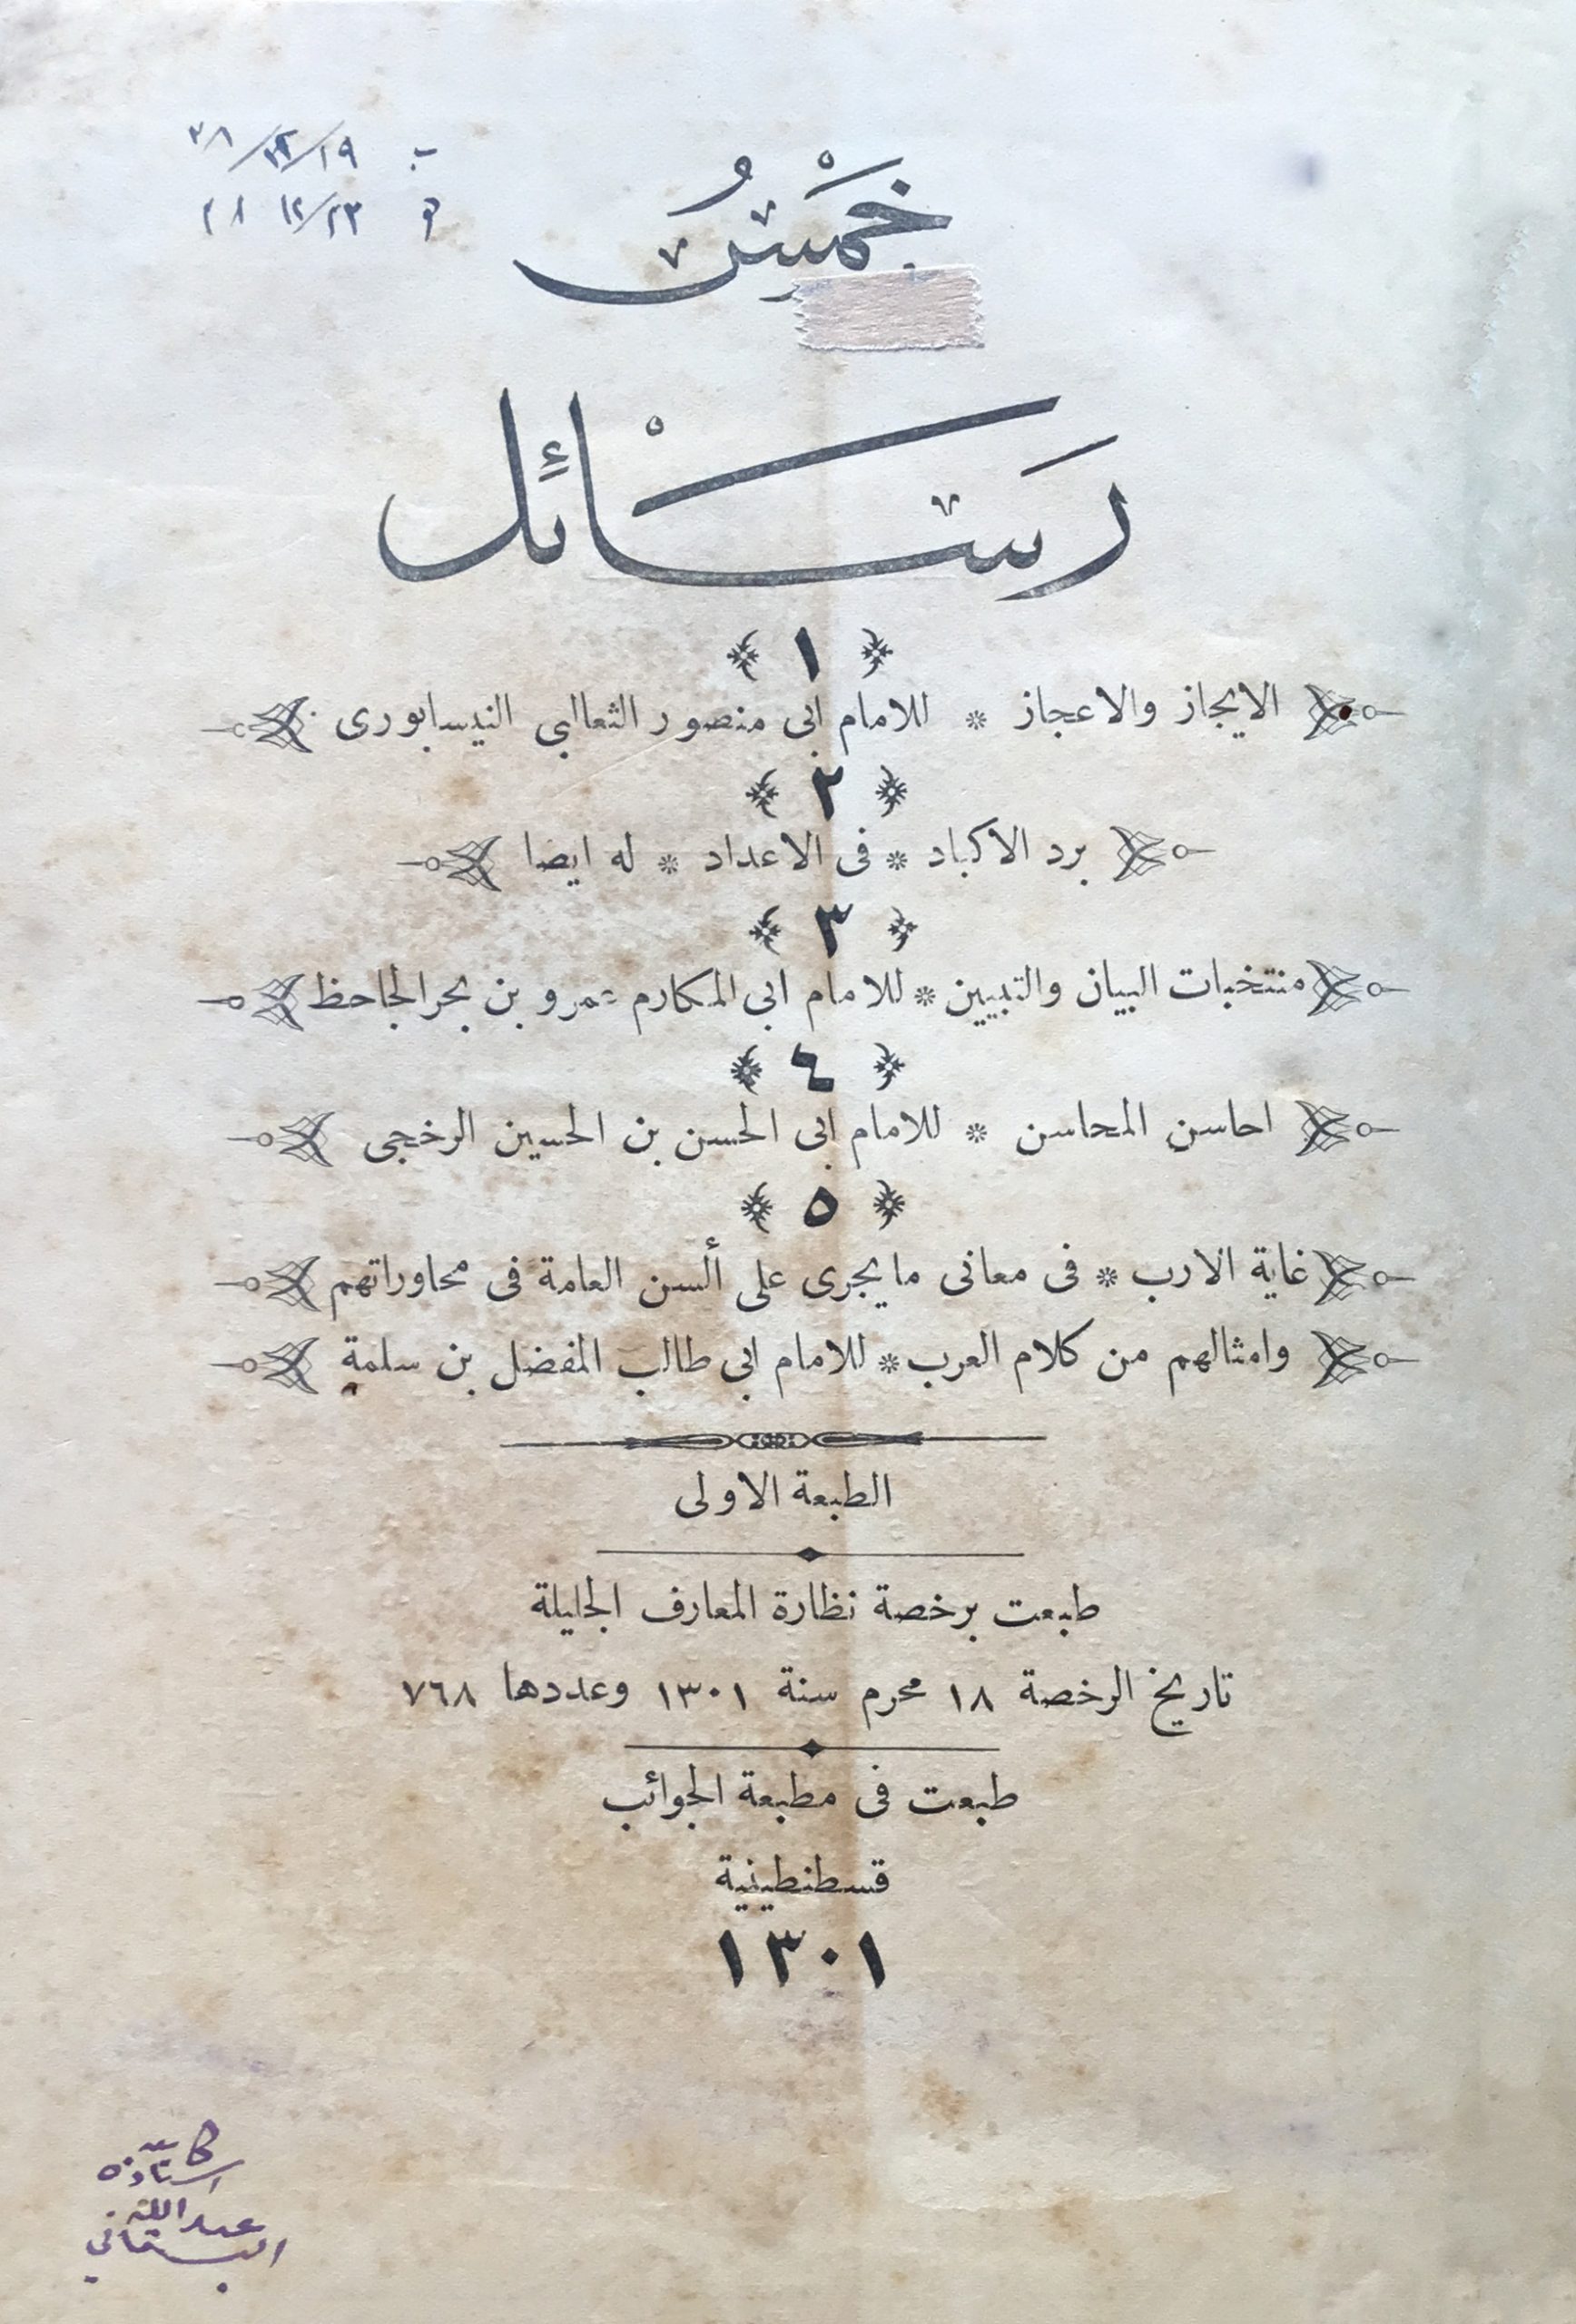 خَمْسُ
رَسَائِل
١
الايجاز والاعجاز * للامام ابى منصور الثعالبى النيسابورى
٢
برد الاكباد * فى الاعداد * له ايضا
٣
منتخبات البيان والتبيين * للامام ابى المكارم عمرو بن بحر الجاحظ
٤
احاسن المحاسن * للامام ابى الحسن بن الحسين الرخجى
٥
غاية الارب * فى معانى ما يجرى على ألسن العامة فى محاوراتهم
وامثالهم من كلام العرب * للامام ابى طالب المفضل بن سلمة
الطبعة الاولى
طبعت برخصة نظارة المعارف الجليلة
تاريخ الرخصة ١٨ محرم سنة ١٣٠١ وعددها ٧٦٨
طبعت فى مطبعة الجوائب
قسطنطينية
١٣٠١
عبدالله